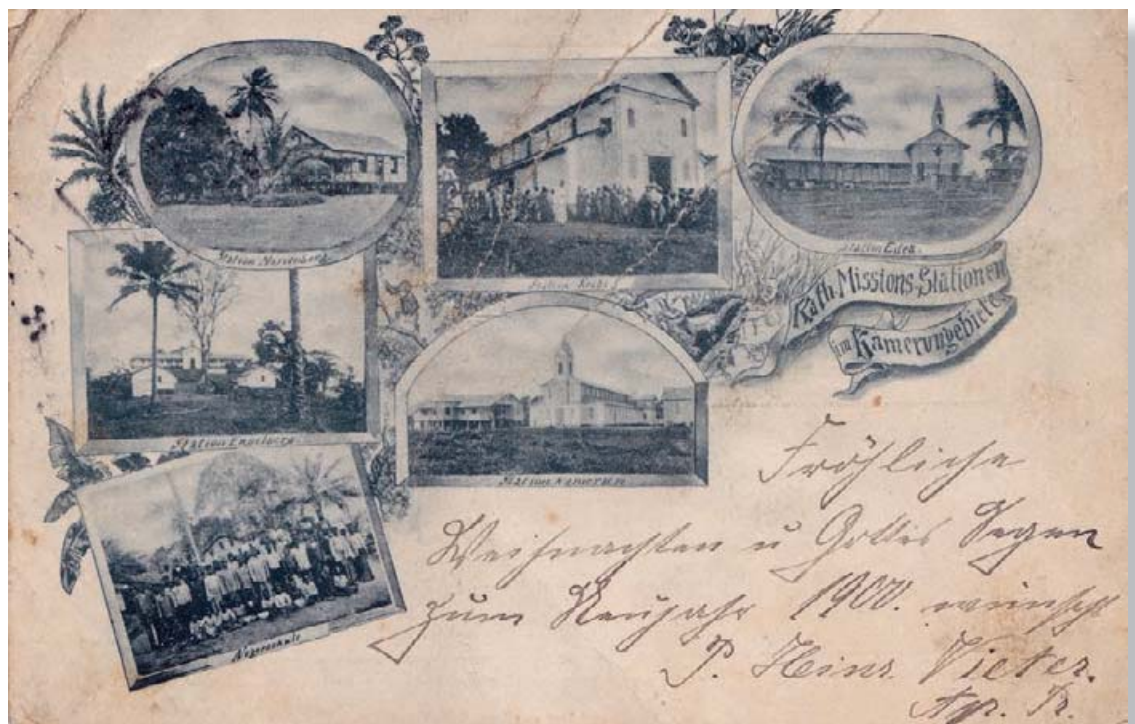 Station Marienberg.
Station Kribi.
Station Edea.
Kath. Missions-Stationen
im Kamerungebiete
Station Engelberg.
Station Kamerun
Negerschule
Fröhliche
Weihnachten u Gottes Segen
zum Neujahr 1900. wünscht
P. Heinr. Vieter.
Ap. Pr.